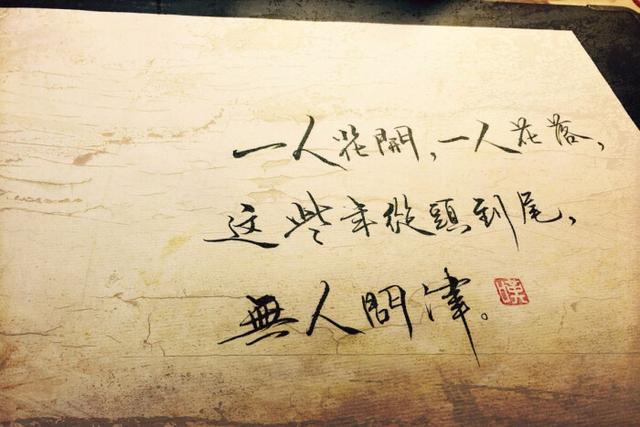 一人花開，一人花落，
这些年從頭到尾，
無人問津。